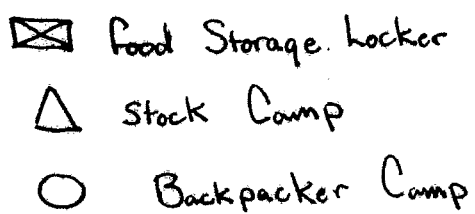 Food Storage Locker
Stock Camp
Backpacker Camp